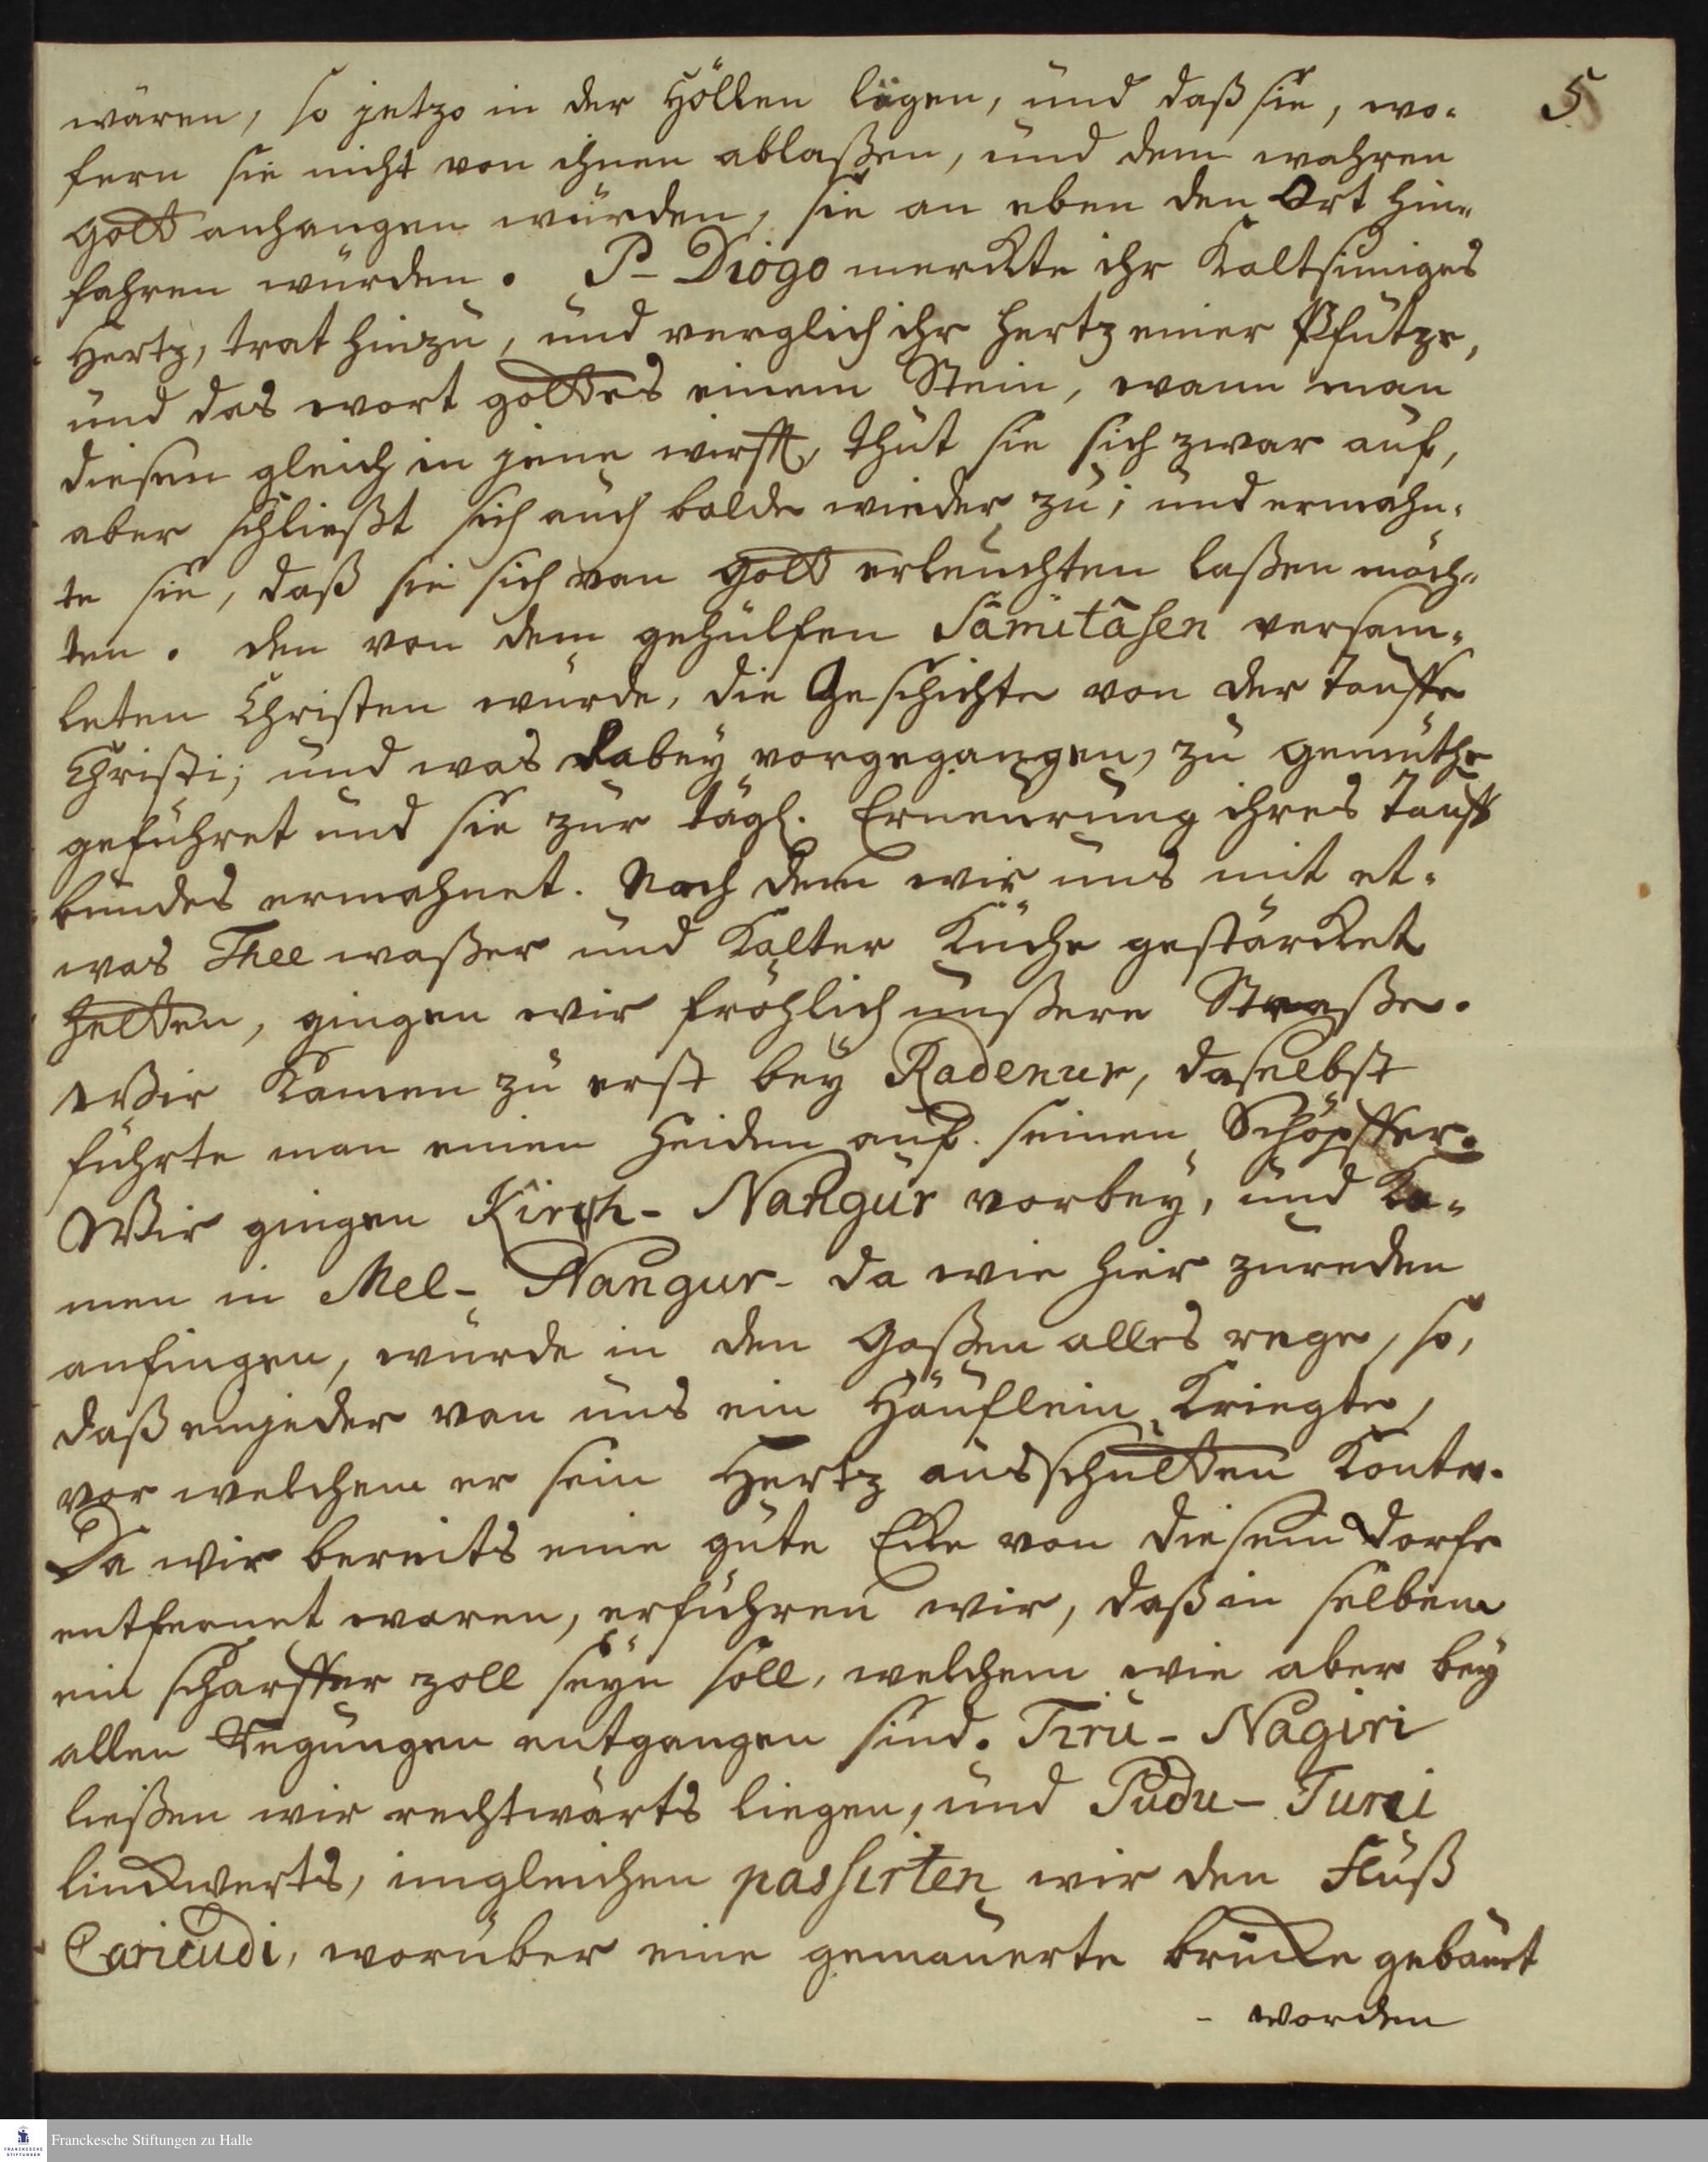 5
wären, so jetzo in der Höllen lägen, und daß sie, wo-
fern sie nicht von ihnen ablaßen, und dem wahren
Gott anhangen würden, sie an eben den Ort hin-
fahren würden. P- Diogo merckte ihr kaltsinniges
Hertz, trat hinzu, und verglich ihr Hertz einer Pfütze,
und das wort gottes einem Stein, wann man
diesen gleich in jene wirfft, thut sie sich zwar auf,
aber schließt sich auch balde wieder zu; und ermahn-
te sie, daß sie sich von Gott erleuchten laßen möch-
ten. den von dem gehülfen Sâmitâsen versam-
leten Christen wurde, die Geschichte von der Tauffe
Christi; und was dabey vorgegangen, zu gemüthe
geführet und sie zur tägl. Erneurung ihres Tauff
bundes ermahnet. Nach dem wir uns mit et-
was Thee waßer und kalter Küche gestärcket
hetten, gingen wir frölich unßere Straße.
Wir kamen zu erst bey Radenur, daselbst
führte man einen Heiden auf seinen Schöpffer.
Wir gingen Kirch- Nangur vorbey, und ka-
men in Mel- Nangur- da wir hier zureden
anfingen, wurde in den Gaßen alles rege, so,
daß einjeder von uns ein Häuflein kriegte,
vor welchem er sein Hertz ausschütten konte.
Da wir bereits eine gute Ecke von diesem Dorfe
entfernet waren, erfuhren wir, daß in selbem
ein scharffer zoll seyn soll, welchem wir aber bey
allen entgangen sind. Tiru- Nagiri
ließen wir rechtwärts liegen, und Pudu- Turei
linckwerts, imgleichen passirten wir den Fluß
Caricudi, worüber eine gemauerte brücke gebauet
- worden
Franckesche Stiftungen zu Halle
FRANCKESCHE STIFTUNGEN